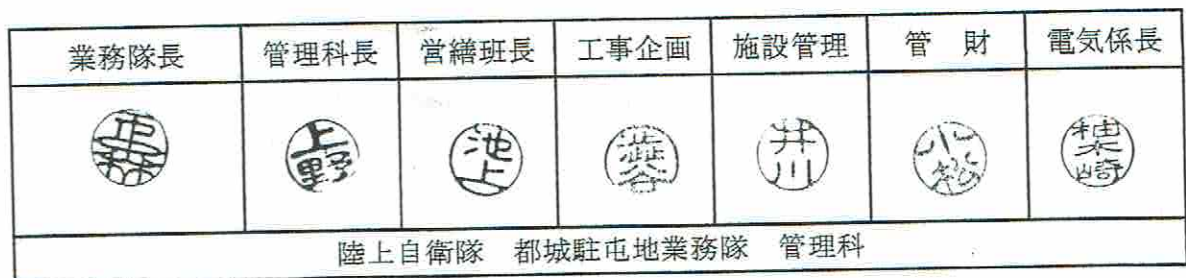 業務隊長 管理科長 営繕班長 工事企画 施設管理 管 財 電気係長
上野 池上 澁谷 井川
陸上自衛隊 都城駐屯地業務隊 管理科